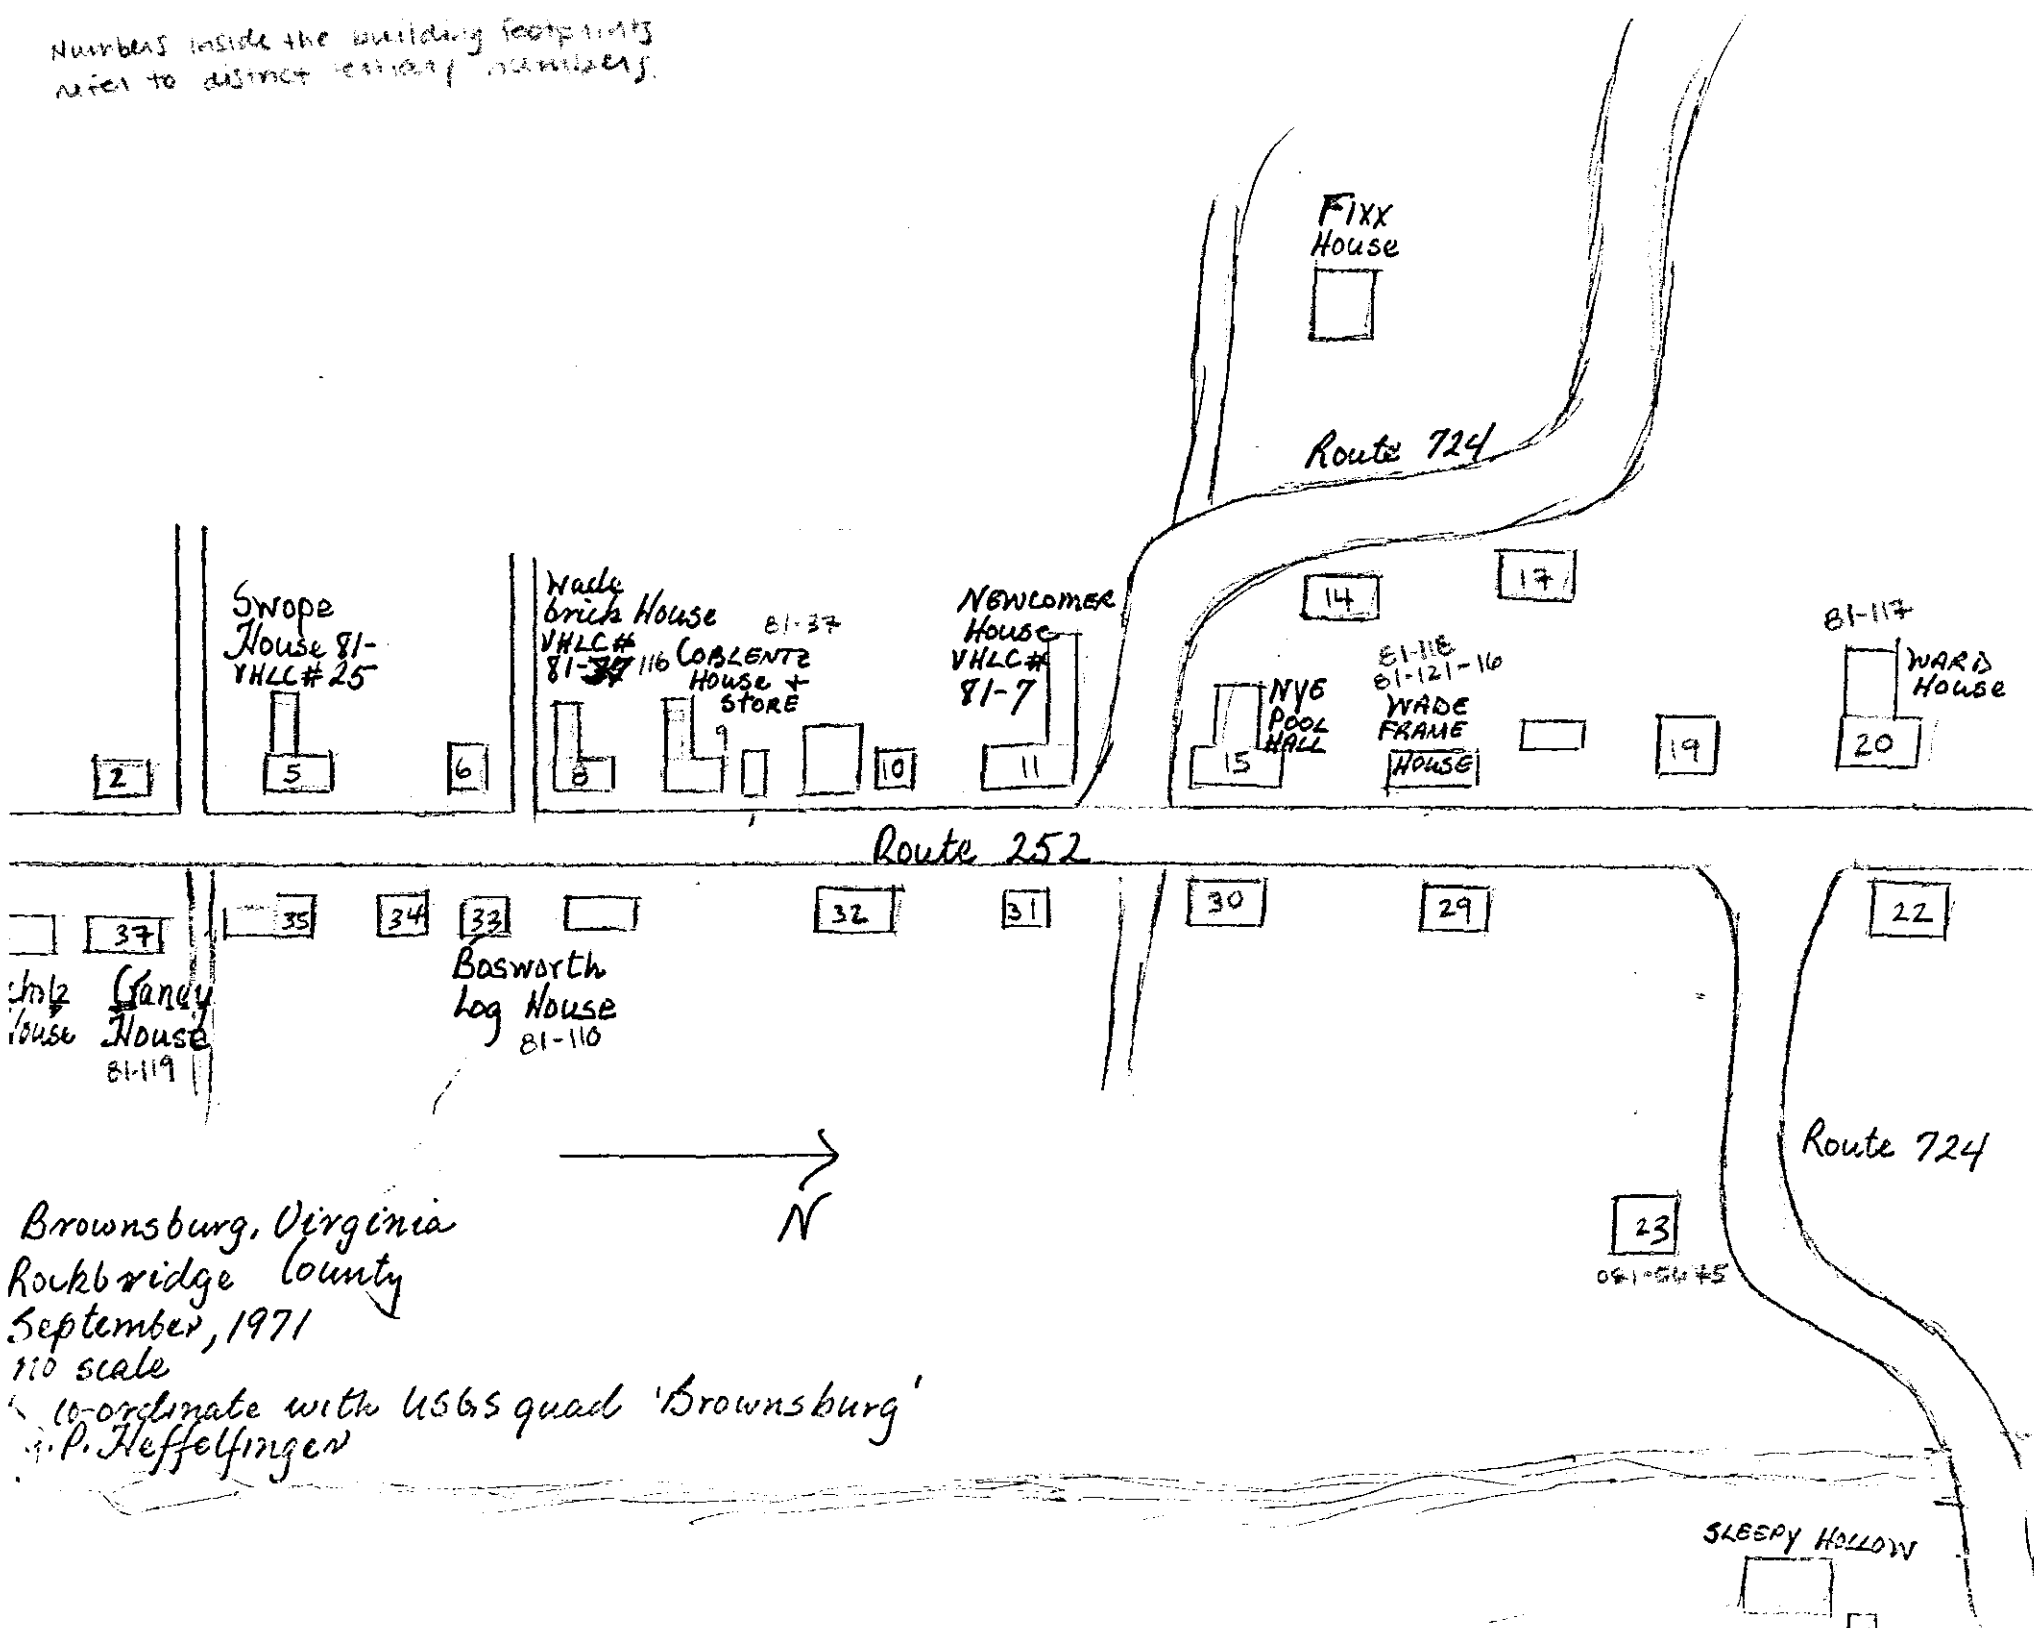 Numbers inside the building footprints
refer to district tertiary numbers.
Fixx
House
Route 724
Swope
House 81-
VHLC# 25
Wade
brick House
VHLC#
81- 116
81-37
COBLENTZ
House +
STORE
NEWCOMER
House
VHLC#
81-7
14
17
NYE
POOL
HALL
81-118
81-121-16
WADE
FRAME
HOUSE
81-117
WARD
House
2
5
6
8
9
10
11
15
19
20
Route 252
37
35
34
33
32
31
30
29
22
House
Gandy
House
81-119
Bosworth
Log House
81-110
N
Route 724
23
Brownsburg, Virginia
Rockbridge County
September, 1971
no scale
co-ordinate with USGS quad 'Brownsburg'
P. Heffelfinger
SLEEPY HOLLOW